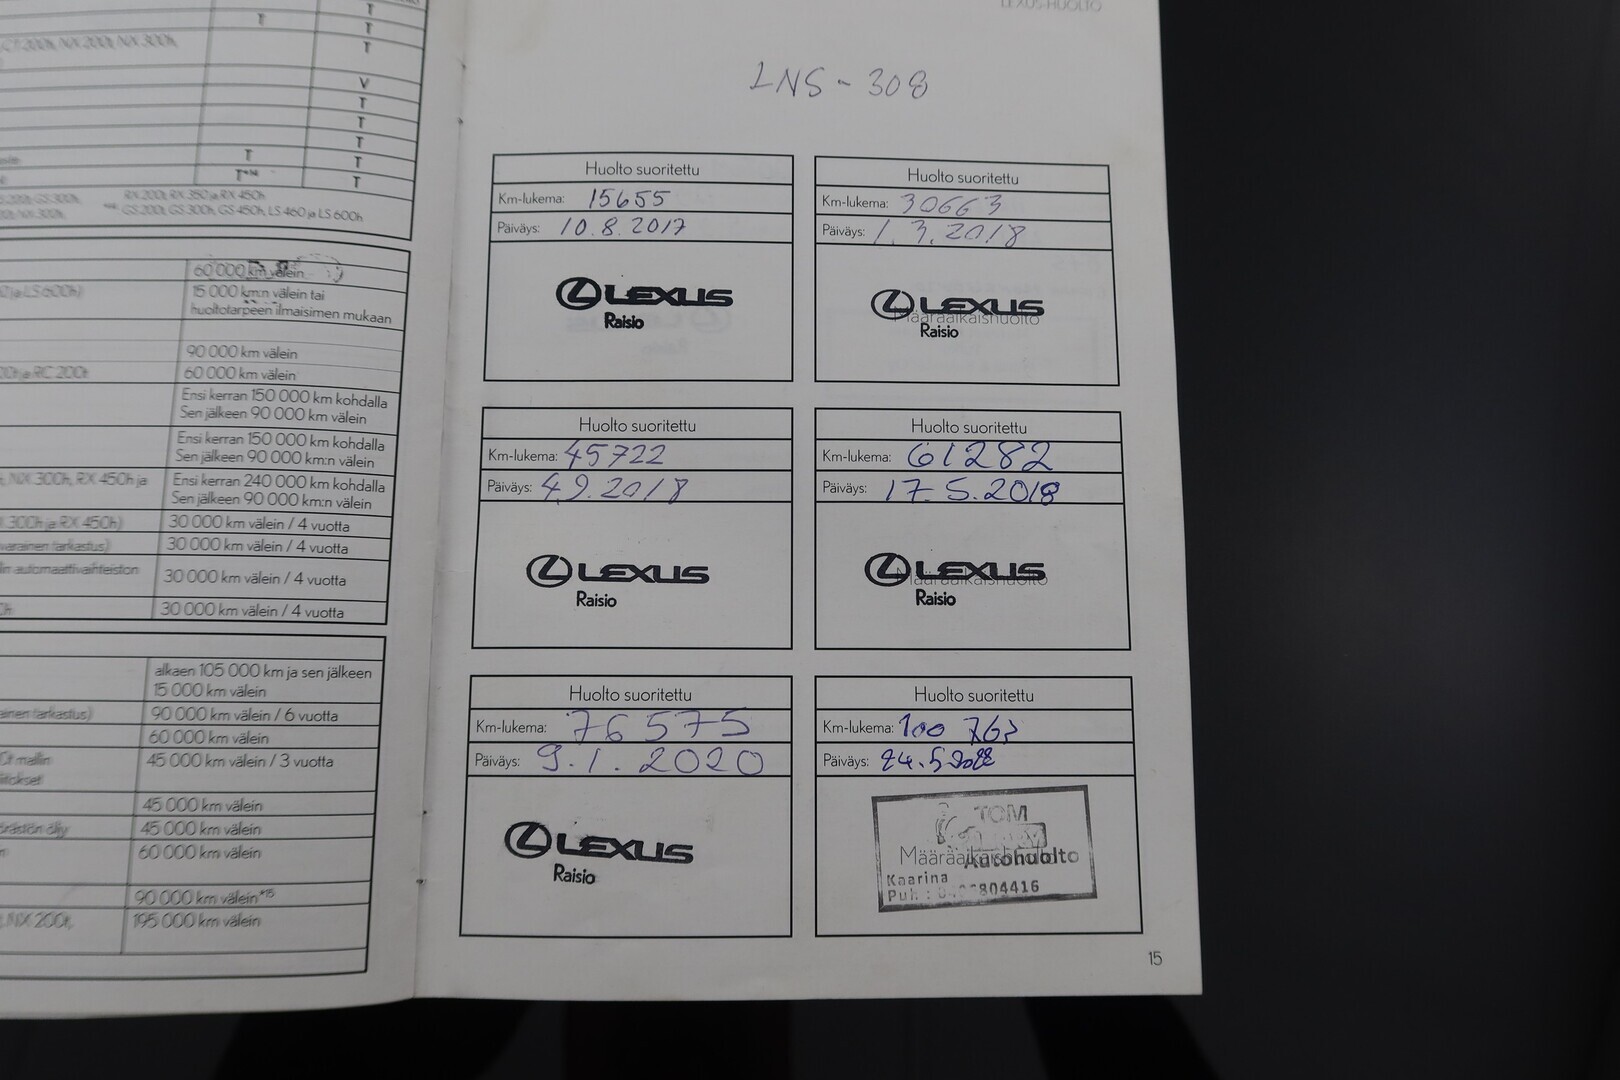 T
T
T
CT 200h, NX 200t, NX 300h,
T
V
T
T
T
T
T
T
T
RX 200t, RX 350 ja RX 450h
GS 200t, GS 300h, GS 450h, LS 460 ja LS 600h
60 000 km välein
ja LS 600h)
15 000 km:n välein tai
huoltotarpeen ilmaisimen mukaan
90 000 km välein
ja RC 200t
60 000 km välein
Ensi kerran 150 000 km kohdalla
Sen jälkeen 90 000 km välein
Ensi kerran 150 000 km kohdalla
Sen jälkeen 90 000 km:n välein
NX 300h, RX 450h ja
Ensi kerran 240 000 km kohdalla
Sen jälkeen 90 000 km:n välein
300h ja RX 450h)
30 000 km välein / 4 vuotta
tarkastus)
30 000 km välein / 4 vuotta
automaattivaihteiston
30 000 km välein / 4 vuotta
30 000 km välein / 4 vuotta
alkaen 105 000 km ja sen jälkeen
15 000 km välein
tarkastus)
90 000 km välein / 6 vuotta
60 000 km välein
mallin
45 000 km välein / 3 vuotta
45 000 km välein
öljy
45 000 km välein
60 000 km välein
90 000 km välein*15
NX 200t,
195 000 km välein
LEXUS-HUOLTO
LNS - 308
Huolto suoritettu
Km-lukema: 15655
Päiväys: 10.8.2017
LEXUS
Raisio
Huolto suoritettu
Km-lukema: 30663
Päiväys: 1.3.2018
LEXUS
Määräaikaishuolto
Raisio
Huolto suoritettu
Km-lukema: 45722
Päiväys: 4.9.2018
LEXUS
Raisio
Huolto suoritettu
Km-lukema: 61282
Päiväys: 17.5.2018
LEXUS
Määräaikaishuolto
Raisio
Huolto suoritettu
Km-lukema: 76575
Päiväys: 9.1.2020
LEXUS
Raisio
Huolto suoritettu
Km-lukema: 100 763
Päiväys: 24.5.2022
TOM
Määräaikaishuolto
Autohuolto
Kaarina
Puh.: 804416
15